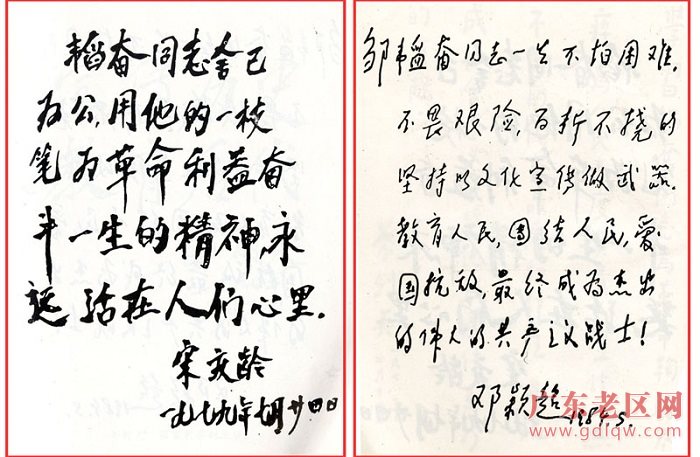 韬奋同志舍己
为公,用他的一枝
笔为革命利益奋
斗一生的精神,永
远活在人们心里.
宋庆龄
一九七九年七月廿四日
邹韬奋同志一生不怕困难,
不畏艰险,百折不挠的
坚持以文化宣传做武器.
教育人民,团结人民,爱
国抗敌,最终成为杰出
的伟大的共产主义战士!
邓颖超
1984.5.
广东老区网
www.gdlqw.com